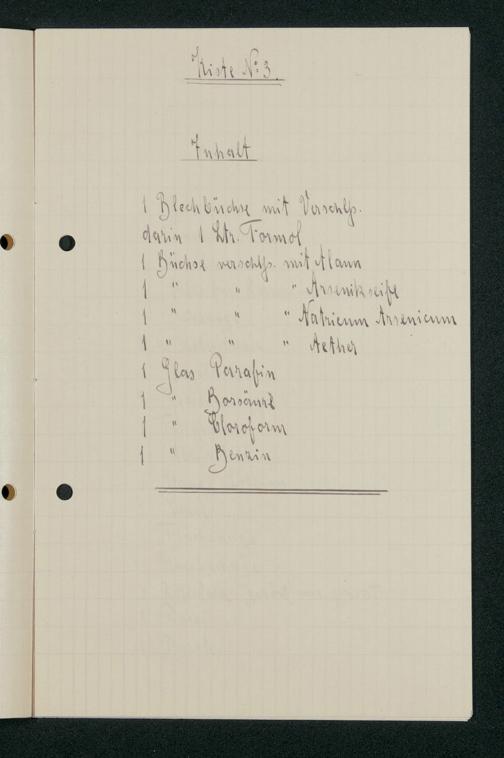 Kiste No: 3.
Inhalt
1 Blechbüchse mit Verschlß.
darin 1 Ltr. Formol
1 Büchse verschlß. mit Alaun
1 " " " Arsenikseife
1 " " " Natrieum Arsenicum
1 " " " Aether
1 Glas Parafin
1 " Borsäure
1 " Cloroform
1 " Benzin